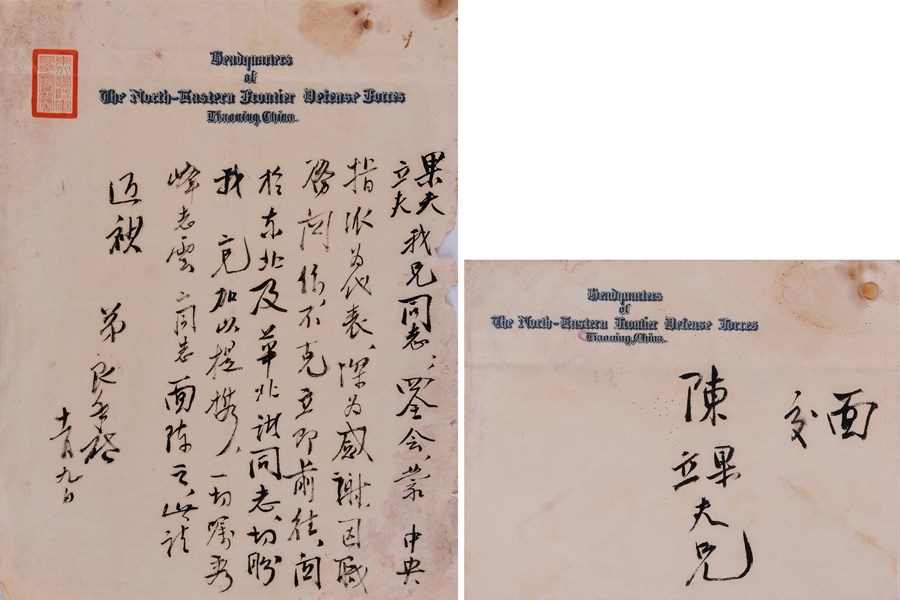 Headquarters
of
The North-Eastern Frontier Defense Forces
Liaoning, China.
果夫
立夫
我兄同志、鑒、蒙 中央
指派為代表、深為感謝、因職
務関係不克立即前往、関
於東北及華北諸同志、切盼
我 二兄加以提携、一切嘱秀
峰志雲二同志面陳之、此請
近祺
弟良手啓
十一月九日
Headquarters
of
The North-Eastern Frontier Defense Forces
Liaoning, China.
面交
陳
果
立
夫兄